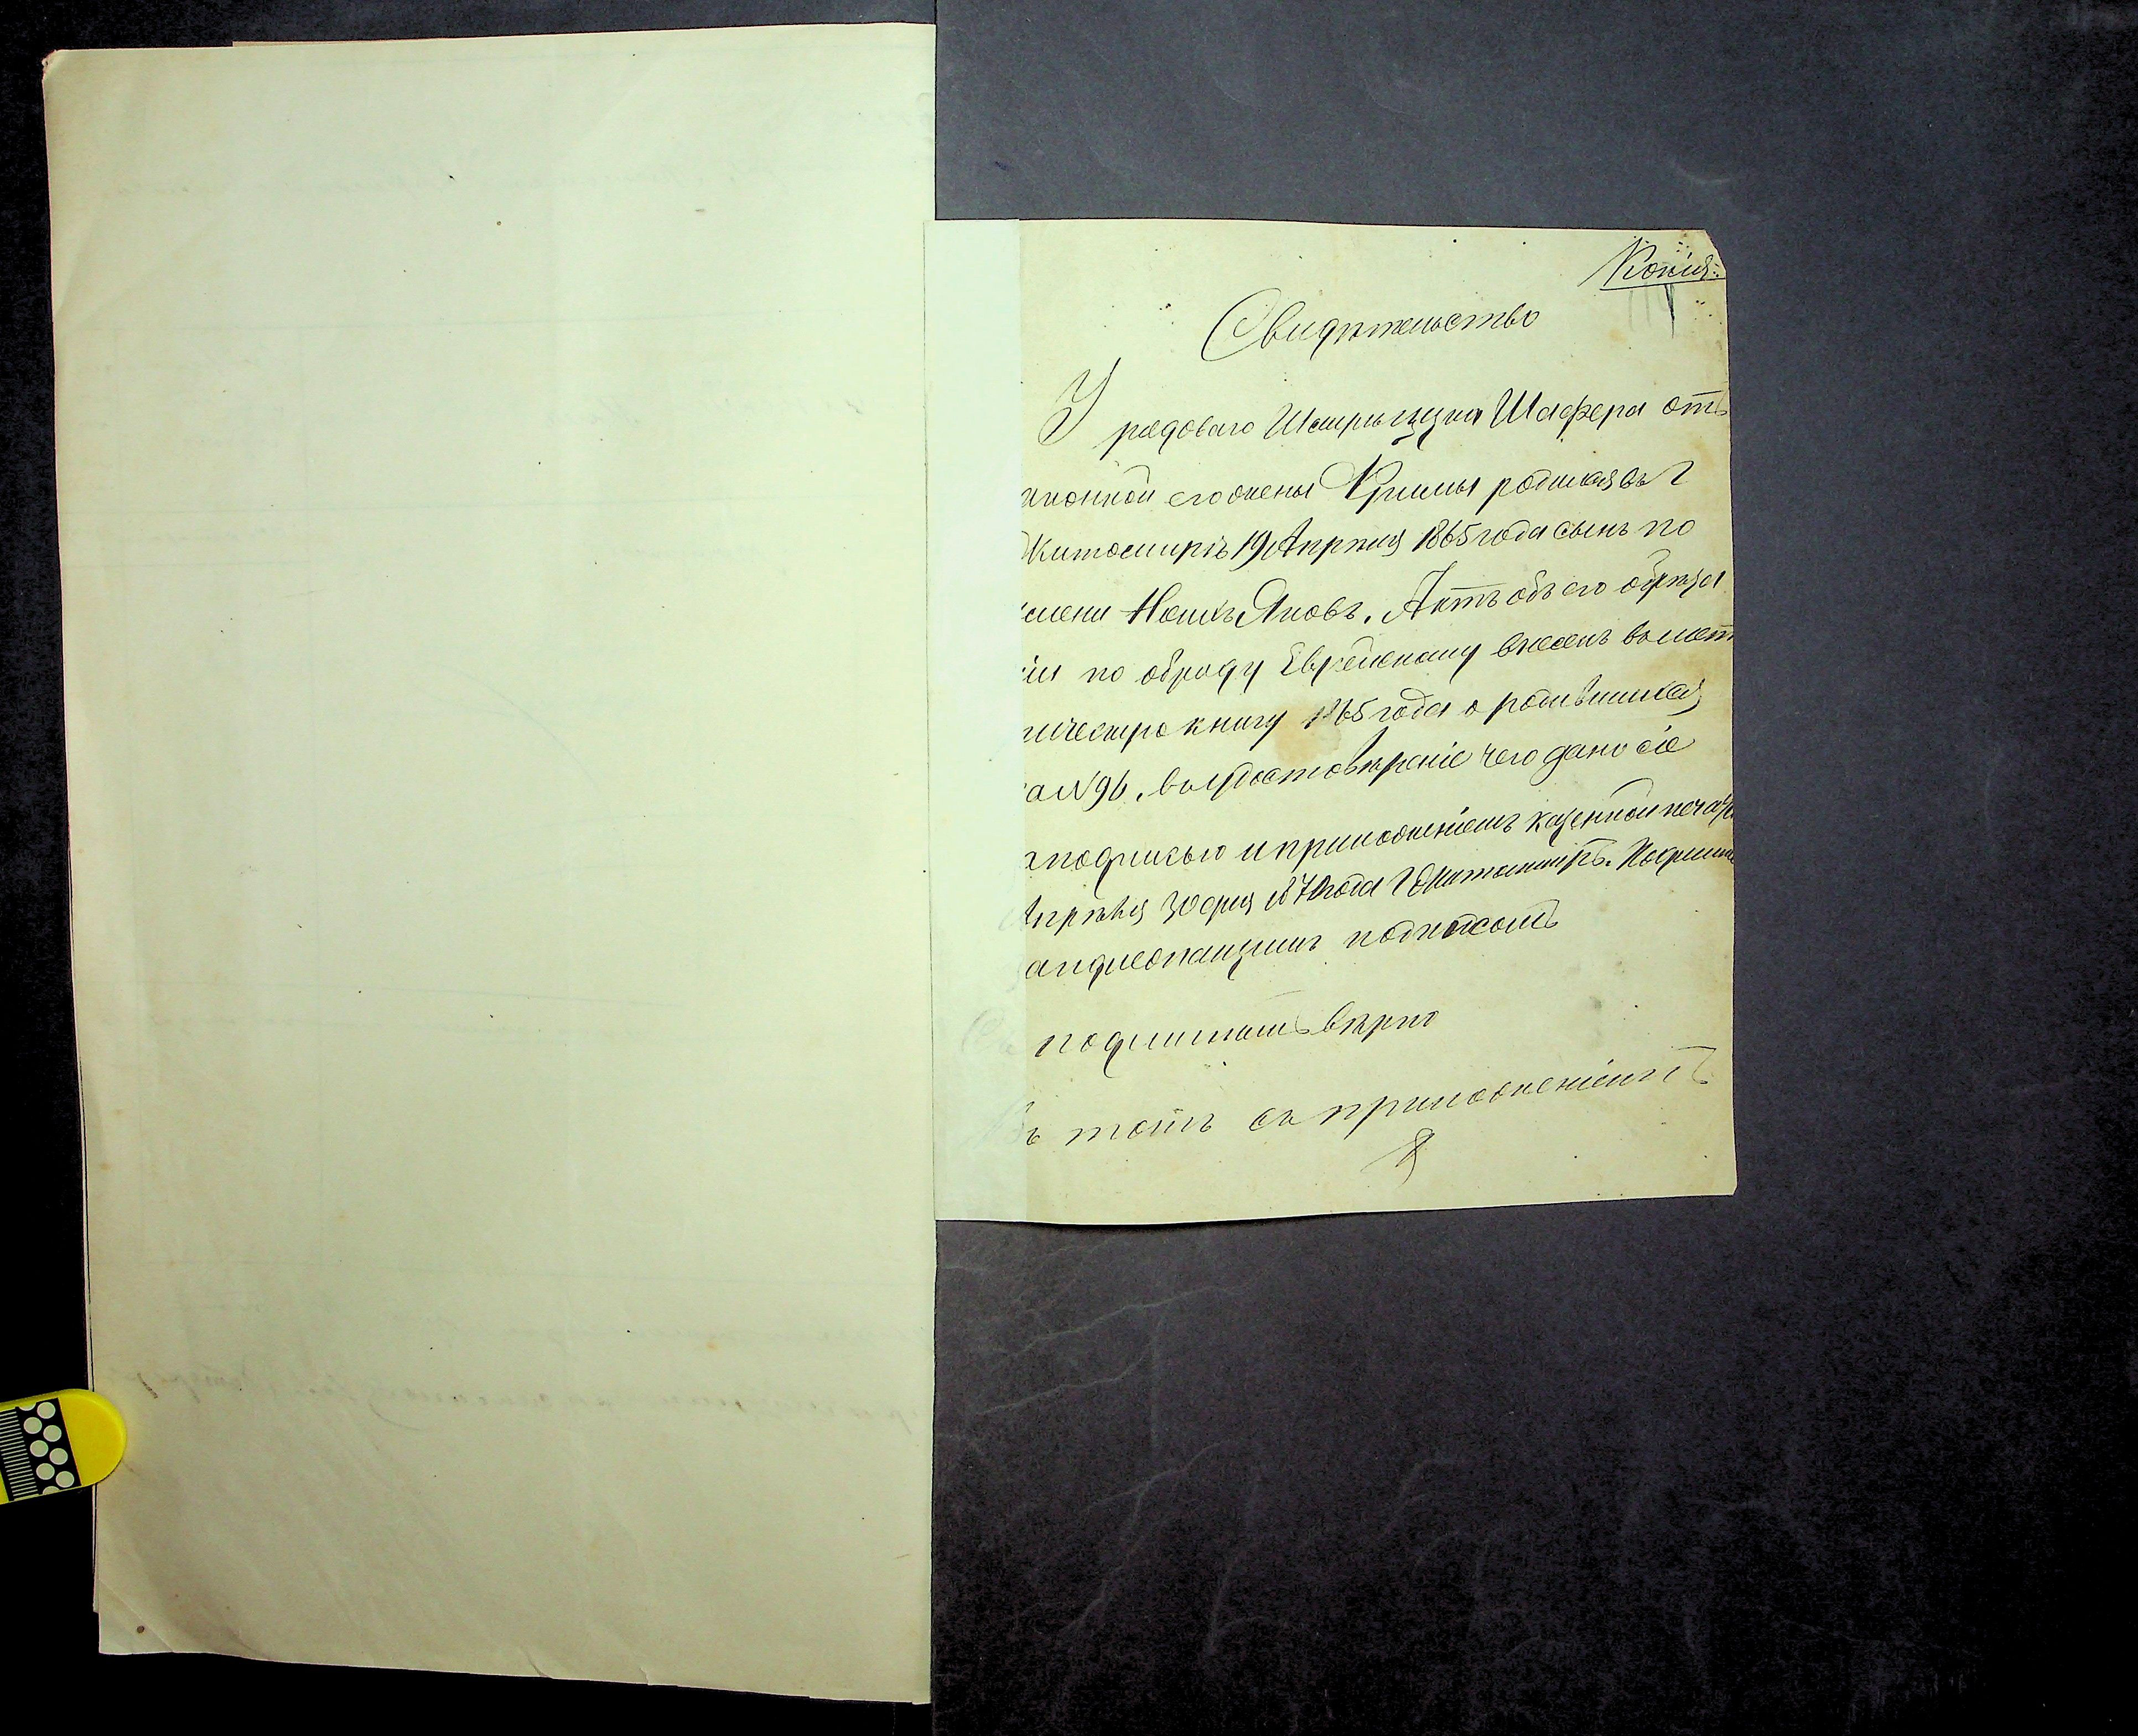 Копія
Свидѣтельство
У рядоваго Шафера отъ
законной его жены родился въ г
Житомирѣ 19 Апрѣля 1865 года сынъ по
имени Яковъ. Актъ объ его обрѣза
ніи по обряду Еврейскому внесенъ въ мет
рическую книгу 1865 года о родившихся
за №96. въ удостовѣреніе чего дано сіе
подписью и приложеніемъ казенной печати
Апрѣля 30 дня 1870 года г Житомиръ.
подписалъ
Съ подлиннымъ вѣрно
Въ томъ съ приложеніемъ